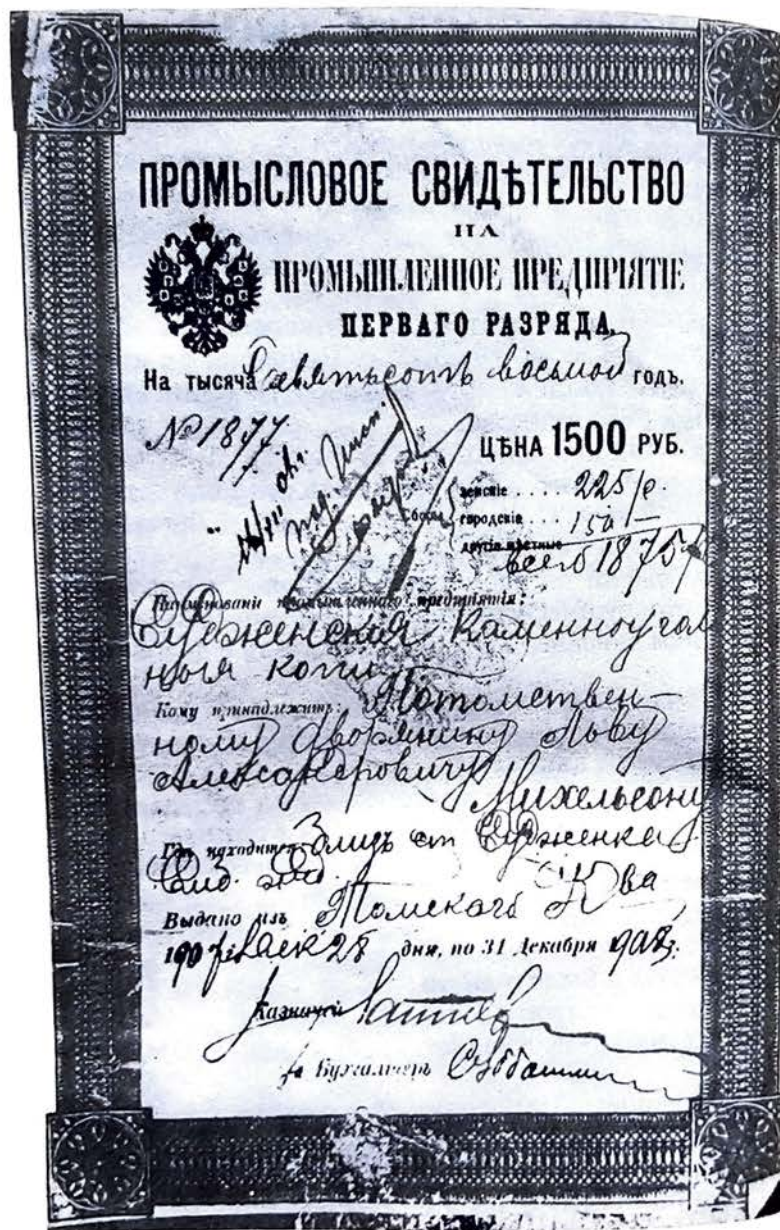 ПРОМЫСЛОВОЕ СВИДѢТЕЛЬСТВО
НА
ПРОМЫШЛЕННОЕ ПРЕДПРІЯТІЕ
ПЕРВАГО РАЗРЯДА.
На тысяча девятьсотъ восьмой годъ.
№ 1877
ЦѢНА 1500 РУБ.
Сборы
земскіе .... 225 р.
городскіе ... 150 –
другіе мѣстные
всего 1875 р
Наименованіе промышленнаго предпріятія:
Судженскія Каменноуголь
ныя копи
Кому принадлежитъ: Потомствен-
ному дворянину Льву
Александровичу
Михельсону
Гдѣ находится: близъ ст Судженка
Сиб. жд.
Выдано изъ Томскаго К-ва
1907 г. Дек 28 дня, по 31 Декабря 1908 г.
Казначей
Бухгалтеръ